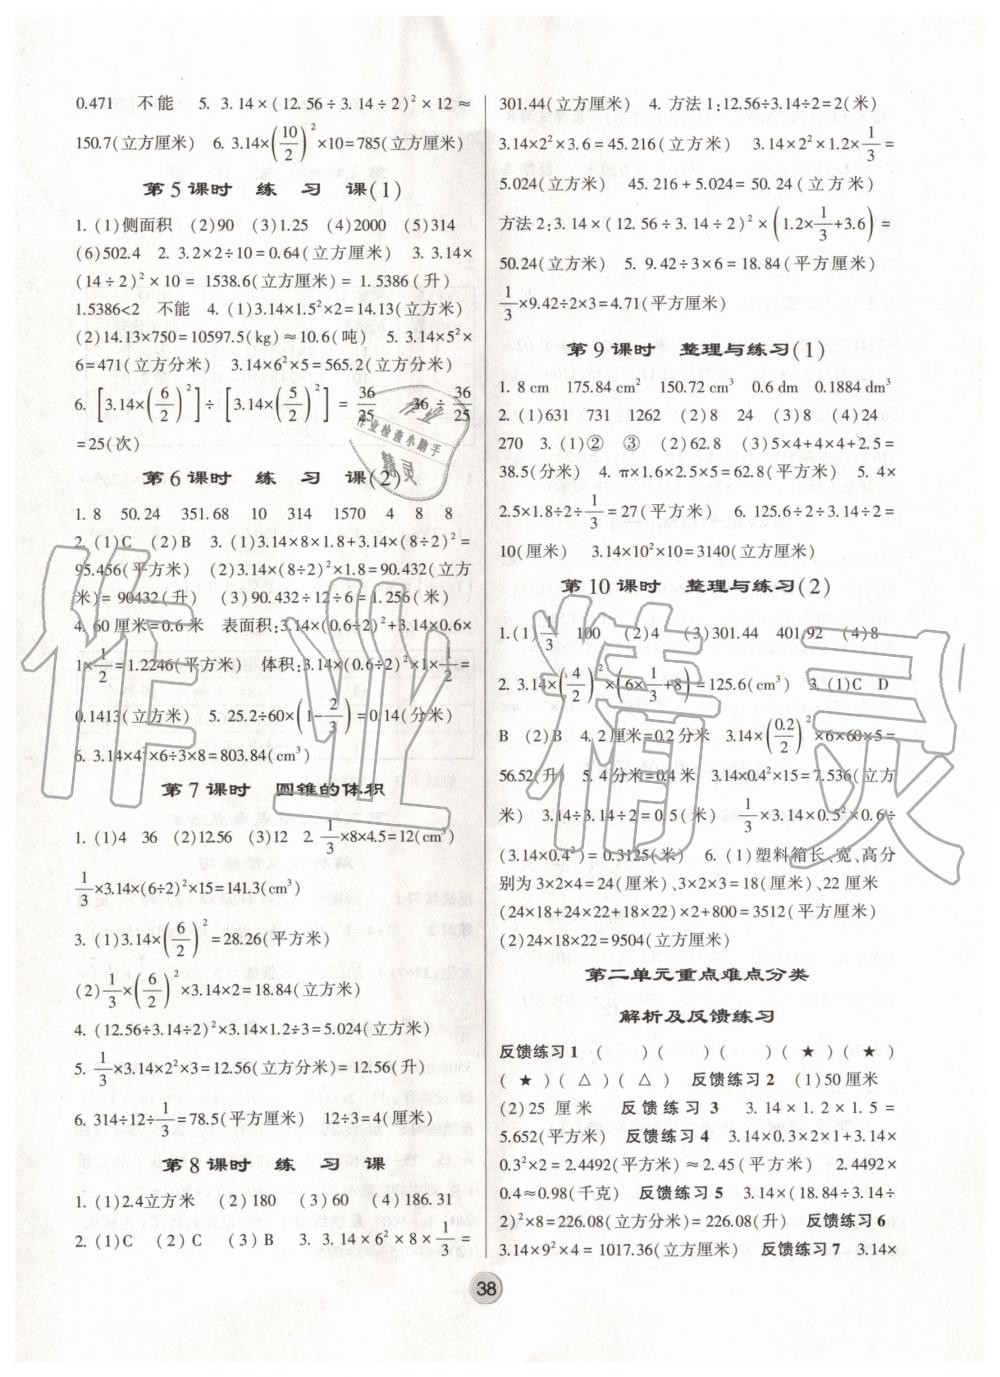 0.471　不能　5. 3.14×(12.56÷3.14÷2)²×12≈
150.7(立方厘米)　6. 3.14×(10/2)²×10=785(立方厘米)
第5课时　练　习　课(1)
1. (1)侧面积　(2)90　(3)1.25　(4)2000　(5)314
(6)502.4　2. 3.2×2÷10=0.64(立方厘米)　3. 3.14×
(14÷2)²×10=1538.6(立方厘米)=1.5386(升)
1.5386<2　不能　4. (1)3.14×1.5²×2=14.13(立方米)
(2)14.13×750=10597.5(kg)≈10.6(吨)　5. 3.14×5²×
6=471(立方分米)　3.14×6²×5=565.2(立方分米)
6. [3.14×(6/2)²]÷[3.14×(5/2)²]=36/25　36÷36/25
=25(次)
第6课时　练　习　课(2)
1. 8　50.24　351.68　10　314　1570　4　8　8
2. (1)C　(2)B　3. (1)3.14×8×1.8+3.14×(8÷2)²=
95.456(平方米)　(2)3.14×(8÷2)²×1.8=90.432(立方
米)=90432(升)　(3)90.432÷12÷6=1.256(米)
4. 60厘米=0.6米　表面积:3.14×(0.6÷2)²+3.14×0.6×
1×1/2=1.2246(平方米)　体积:3.14×(0.6÷2)²×1×1/2=
0.1413(立方米)　5. 25.2÷60×(1-2/3)=0.14(分米)
6. 3.14×4²×6÷3×8=803.84(cm³)
第7课时　圆锥的体积
1. (1)4　36　(2)12.56　(3)12　2. 1/3×8×4.5=12(cm³)
1/3×3.14×(6÷2)²×15=141.3(cm³)
3. (1)3.14×(6/2)²=28.26(平方米)
(2)1/3×(6/2)²×3.14×2=18.84(立方米)
4. (12.56÷3.14÷2)²×3.14×1.2÷3=5.024(立方米)
5. 1/3×3.14×2²×3=12.56(立方分米)=12.56(升)
6. 314÷12÷1/3=78.5(平方厘米)　12÷3=4(厘米)
第8课时　练　习　课
1. (1)2.4立方米　(2)180　(3)60　(4)186.31
2. (1)C　(2)C　(3)B　3. 3.14×6²×8×1/3=
301.44(立方厘米)　4. 方法1:12.56÷3.14÷2=2(米)
3.14×2²×3.6=45.216(立方米)　3.14×2²×1.2×1/3=
5.024(立方米)　45.216+5.024=50.24(立方米)
方法2:3.14×(12.56÷3.14÷2)²×(1.2×1/3+3.6)=
50.24(立方米)　5. 9.42÷3×6=18.84(平方厘米)
1/3×9.42÷2×3=4.71(平方厘米)
第9课时　整理与练习(1)
1. 8 cm　175.84 cm²　150.72 cm³　0.6 dm　0.1884 dm³
2. (1)631　731　1262　(2)8　24　(3)8　(4)24
270　3. (1)②　③　(2)62.8　(3)5×4+4×4+2.5=
38.5(分米)　4. π×1.6×2.5×5=62.8(平方米)　5. 4×
2.5×1.8÷2÷1/3=27(立方米)　6. 125.6÷2÷3.14÷2=
10(厘米)　3.14×10²×10=3140(立方厘米)
第10课时　整理与练习(2)
1. (1)1/3　100　(2)4　(3)301.44　401.92　(4)8
2. 3.14×(4/2)²×(6×1/3+8)=125.6(cm³)　3. (1)C　D
B　(2)B　4. 2厘米=0.2分米　3.14×(0.2/2)²×6×60×5=
56.52(升)　5. 4分米=0.4米　3.14×0.4²×15=7.536(立方
米)　3.14÷3.14÷2=0.5(米)　1/3×3.14×0.5²×0.6÷
(3.14×0.4²)=0.3125(米)　6. (1)塑料箱长、宽、高分
别为3×2×4=24(厘米)、3×2×3=18(厘米)、22厘米
(24×18+24×22+18×22)×2+800=3512(平方厘米)
(2)24×18×22=9504(立方厘米)
第二单元重点难点分类
解析及反馈练习
反馈练习1　(　　)(　　)(　　)(★)(★)
(★)(△)(△)　反馈练习2　(1)50厘米
(2)25厘米　反馈练习3　3.14×1.2×1.5=
5.652(平方米)　反馈练习4　3.14×0.3×2×1+3.14×
0.3²×2=2.4492(平方米)≈2.45(平方米)　2.4492
×0.4≈0.98(千克)　反馈练习5　3.14×(18.84÷3.14÷
2)²×8=226.08(立方分米)=226.08(升)　反馈练习6
3.14×9²×4=1017.36(立方厘米)　反馈练习7　3.14×
38
作业精灵
作业
作业检查小助手
精灵